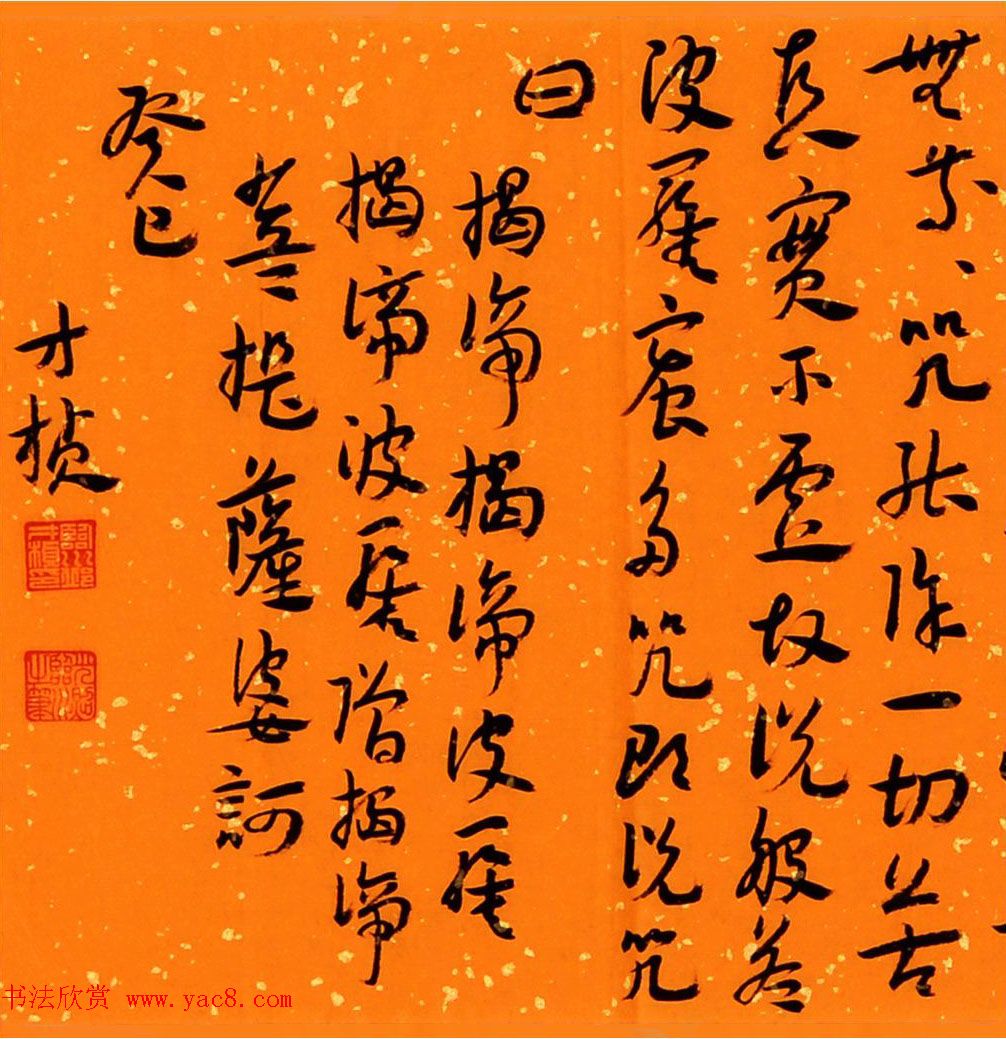 無等、咒能除一切苦
真實不虛故說般若
波羅蜜多咒即說咒
曰
揭諦揭諦波羅
揭諦波羅僧揭諦
菩提薩婆訶
癸巳
才楨
书法欣赏 www.yac8.com